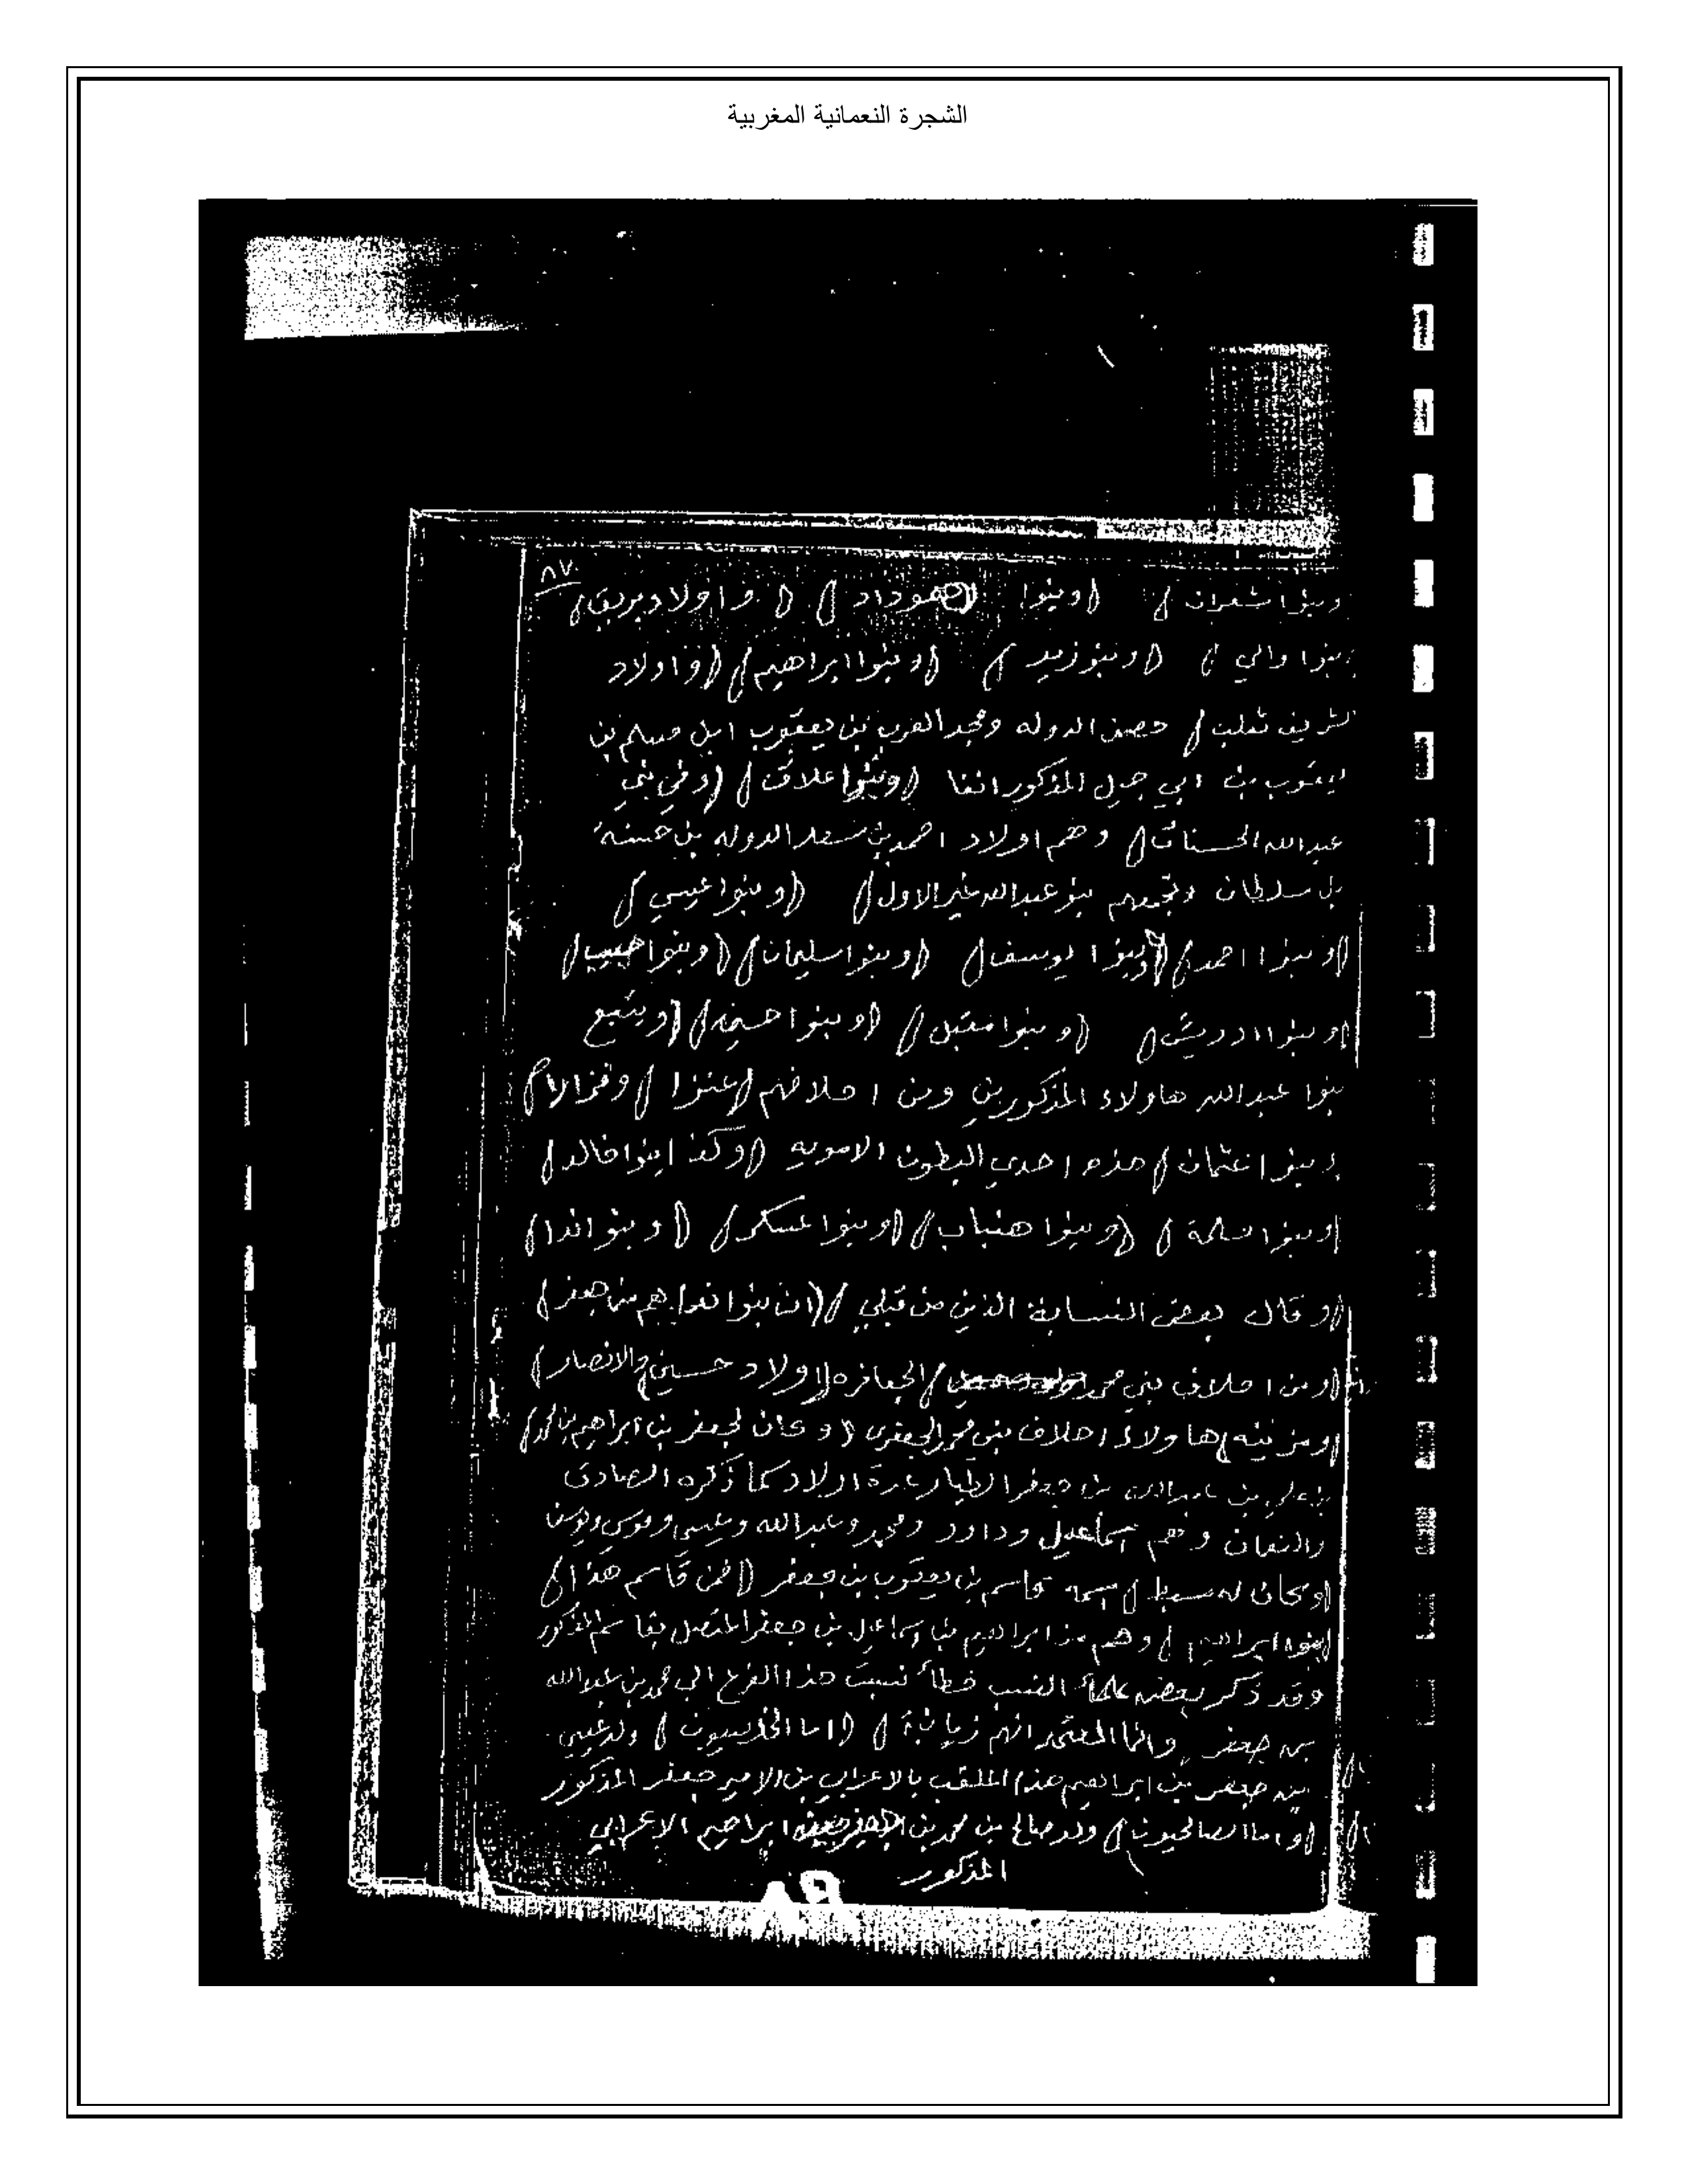 الشجرة النعمانية المغربية
٨٧
وبنوا شعران ) (وبنوا هوداد ) ( واولاد بريق )
بنوا والي ) (وبنو زيد ) (وبنوا ابراهيم) (فاولاد
الشريف ثعلب) حصن الدوله ومجد العرب بن يعقوب ابن مسلم بن
يعقوب بن ابي جميل المذكور انفا (وبنوا علاق) (وفي بني
عبدالله الحسنات) وهم اولاد احمد بن سعد الدوله بن حسنه
بن سلطان وتجمعهم بنو عبدالله غير الاول) (وبنوا عيسي)
(وبنوا احمد) (وبنوا يوسف) (وبنوا سليمان) (وبنوا حبيب)
(وبنوا ادريس) (وبنوا مقبل) (وبنوا) (ويتبع
بنوا عبدالله هاولاء المذكورين ومن احلافهم (عنزا)
وبنوا عثمان) هذه احدي البطون الامويه (وكذا بنوا خالد)
(وبنوا سلمة) (وبنوا هنباب) (وبنوا عسكر) (وبنو اندا)
(وقال بعض النسابة الذين من قبلي) (ان بنوا ندا هم من جعفر)
(ومن احلاف بني محمد) الجعافره (اولاد حسين والانصار)
(ومزينه) هاولاء احلاف بني محمد الجعفري (وكان لجعفر بن ابراهيم بن محمد)
بن علي بن عبدالله بن جعفر الطيار عدة اولاد كما ذكره الصادق
والنعمان وهم اسماعيل وداود ومحمد وعبدالله وعيسي وموسي ويوسف
(وكان له سبط) اسمه قاسم بن يعقوب بن جعفر (فمن قاسم هذا)
(بنوا ابراهيم) وهم من ابراهيم بن اسماعيل بن جعفر المتصل بقاسم المذكور
وقد ذكر بعض علماء النسب خطأ نسبت هذا الفرع الي محمد بن عبدالله
بن جعفر وانما المعتمد انهم زيانبة) (اما) ولد عيسي
بن جعفر بن ابراهيم هذم الملقب بالاعرابي بن الامير جعفر المذكور
(واما الصالحيون) ولد صالح بن محمد بن ابراهيم الاعرابي
المذكور
٨٩